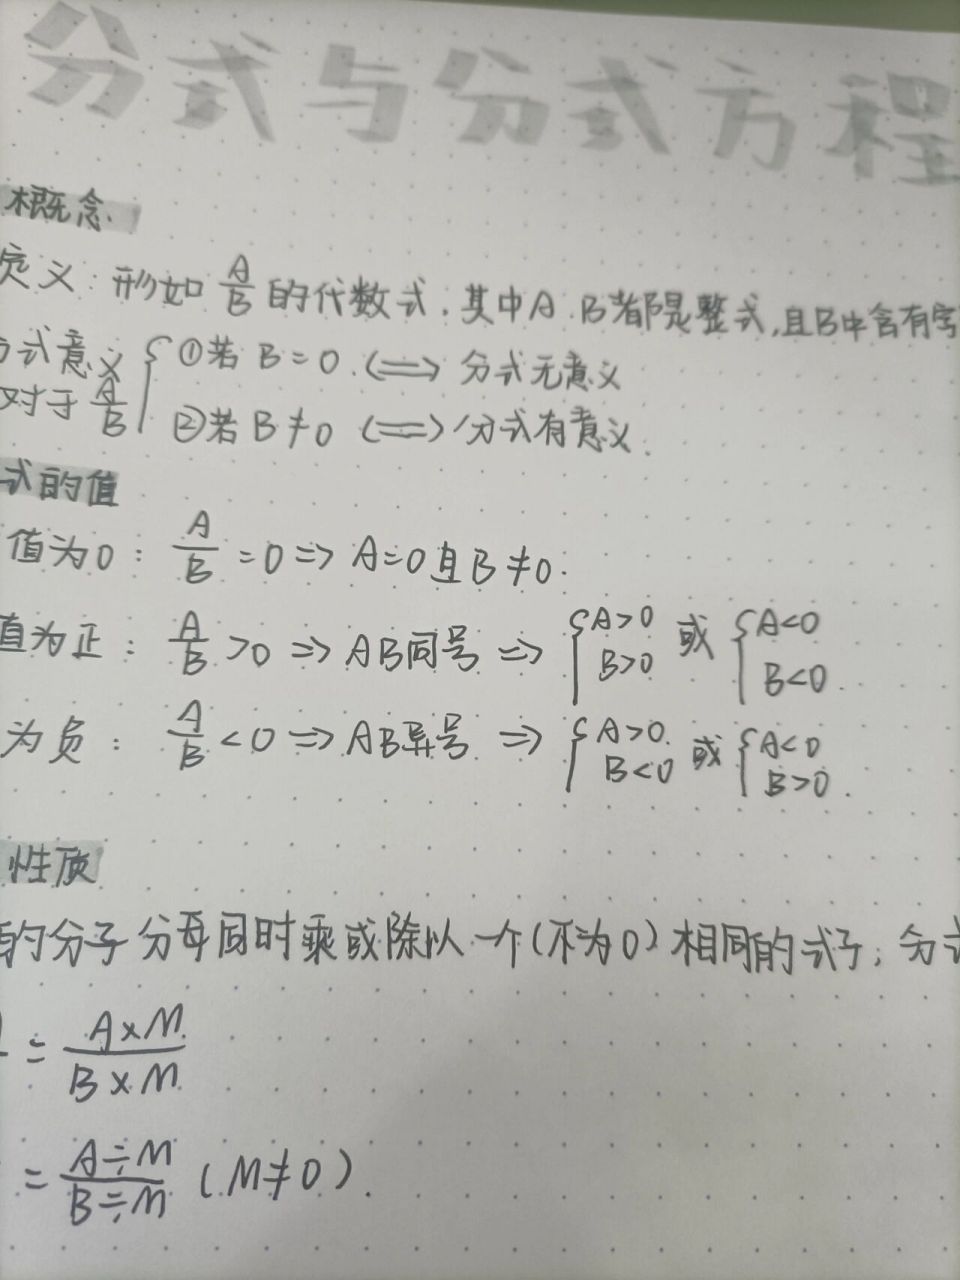 分式与分式方程
概念
定义：形如 A/B 的代数式，其中A.B都是整式，且B中含有字
分式意义 { ①若 B=0. <=> 分式无意义
对于 A/B { ②若 B≠0 <=> 分式有意义.
式的值
值为0： A/B =0 => A=0且B≠0.
值为正： A/B >0 => AB同号 => { A>0 B>0 或 { A<0 B<0.
为负： A/B <0 => AB异号 => { A>0. B<0 或 { A<0 B>0.
性质
的分子分母同时乘或除以一个(不为0)相同的式子；分式
= A×M / B×M
= A÷M / B÷M (M≠0).